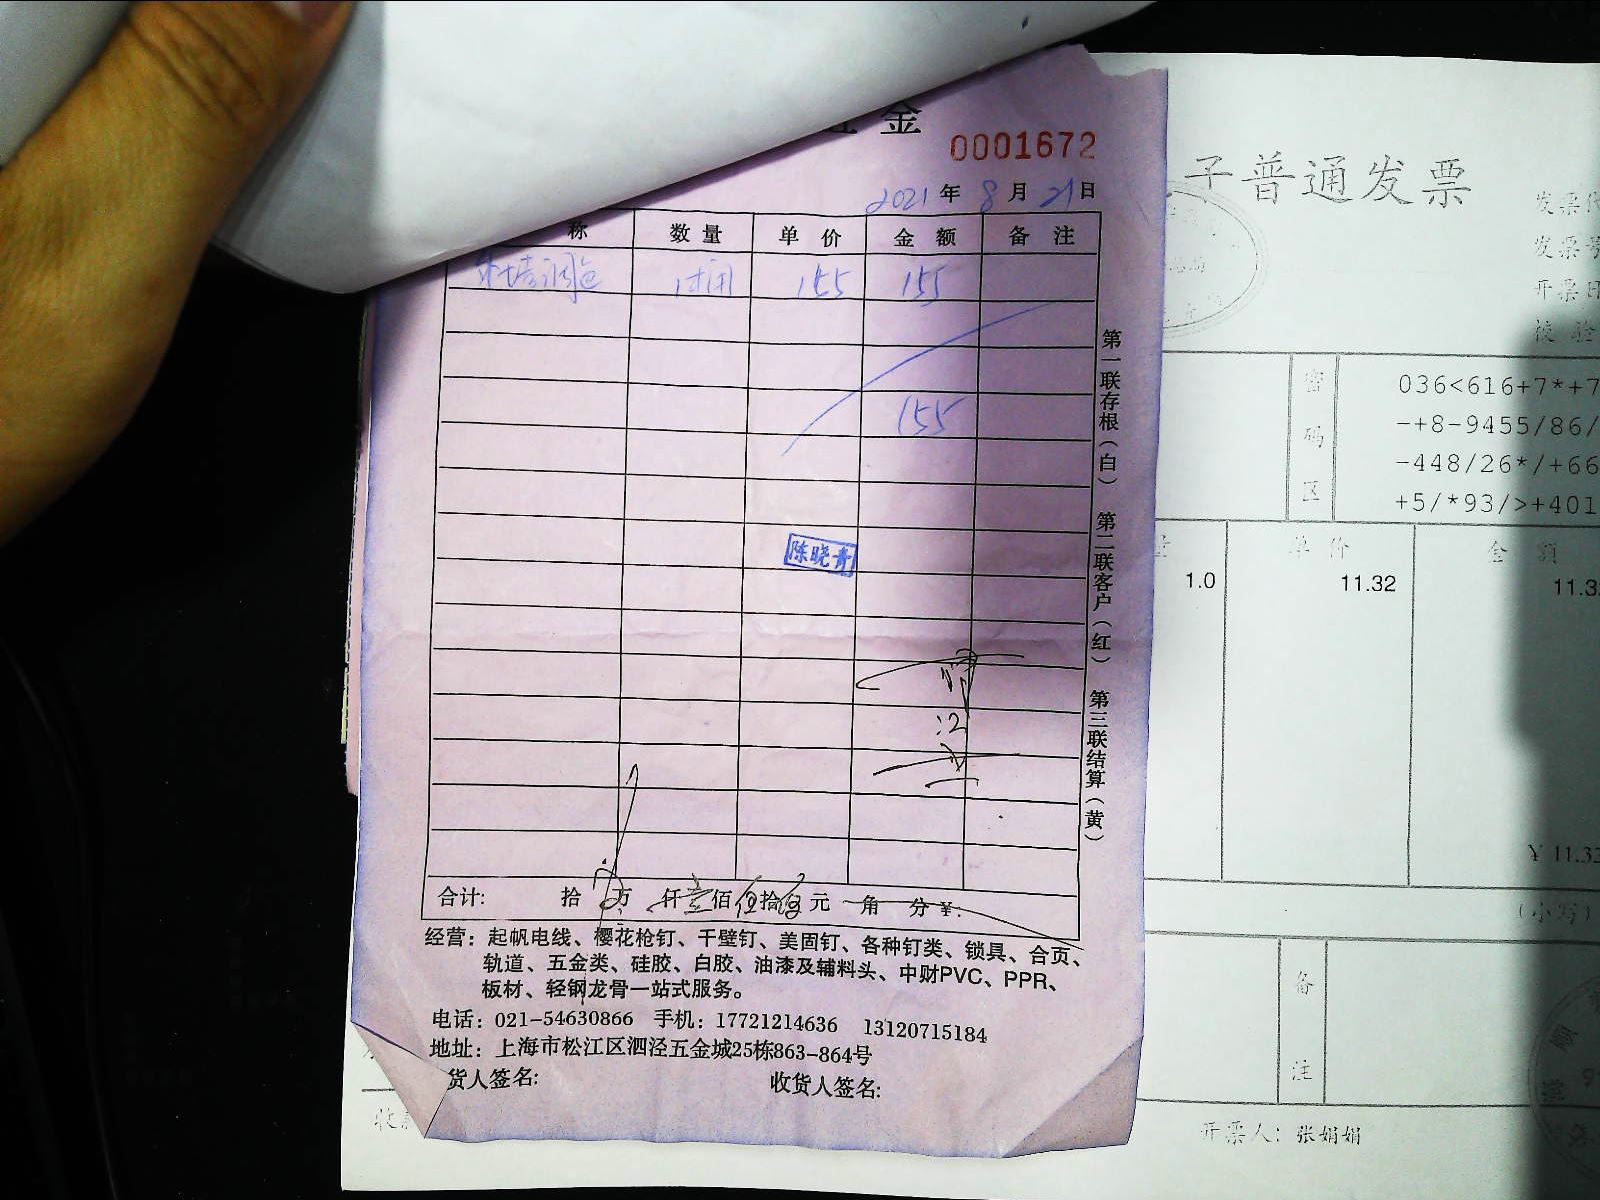 金
0001672
2021年8月21日
称 数量 单价 金额 备注
外墙调色 155 155
155
陈晓青
第一联存根(白) 第二联客户(红) 第三联结算(黄)
合计: 拾 万 仟壹佰伍拾伍元 角 分 ¥:
经营:起帆电线、樱花枪钉、干壁钉、美固钉、各种钉类、锁具、合页、
轨道、五金类、硅胶、白胶、油漆及辅料头、中财PVC、PPR、
板材、轻钢龙骨一站式服务。
电话:021-54630866 手机:17721214636 13120715184
地址:上海市松江区泗泾五金城25栋863-864号
货人签名: 收货人签名:
子普通发票
发票代
发票号
开票日
校验
密码区
036<616+7*+7
-+8-9455/86/
-448/26*/+66
+5/*93/>+401
单价 金额
1.0 11.32 11.32
¥ 11.32
(小写)
备注
收
开票人: 张娟娟